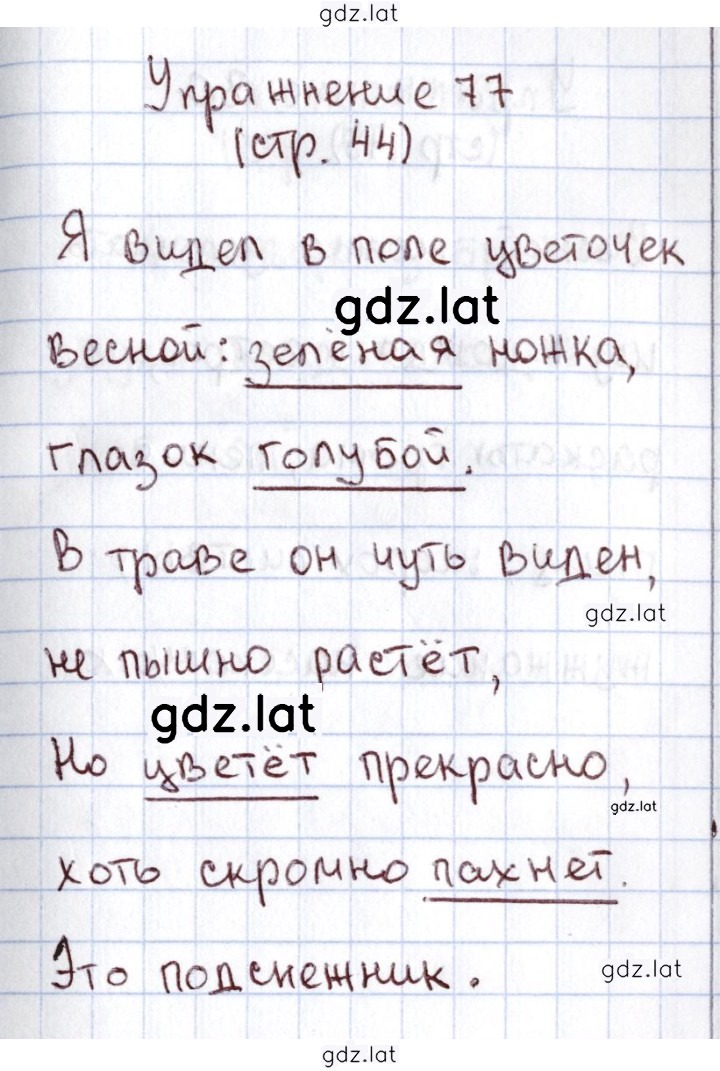 gdz.lat
Упражнение 77
(стр. 44)
Я видел в поле цветочек
gdz.lat
весной: зелёная ножка,
глазок голубой.
В траве он чуть виден,
gdz.lat
не пышно растёт,
gdz.lat
Но цветёт прекрасно,
gdz.lat
хоть скромно пахнет.
Это подснежник.
gdz.lat
gdz.lat